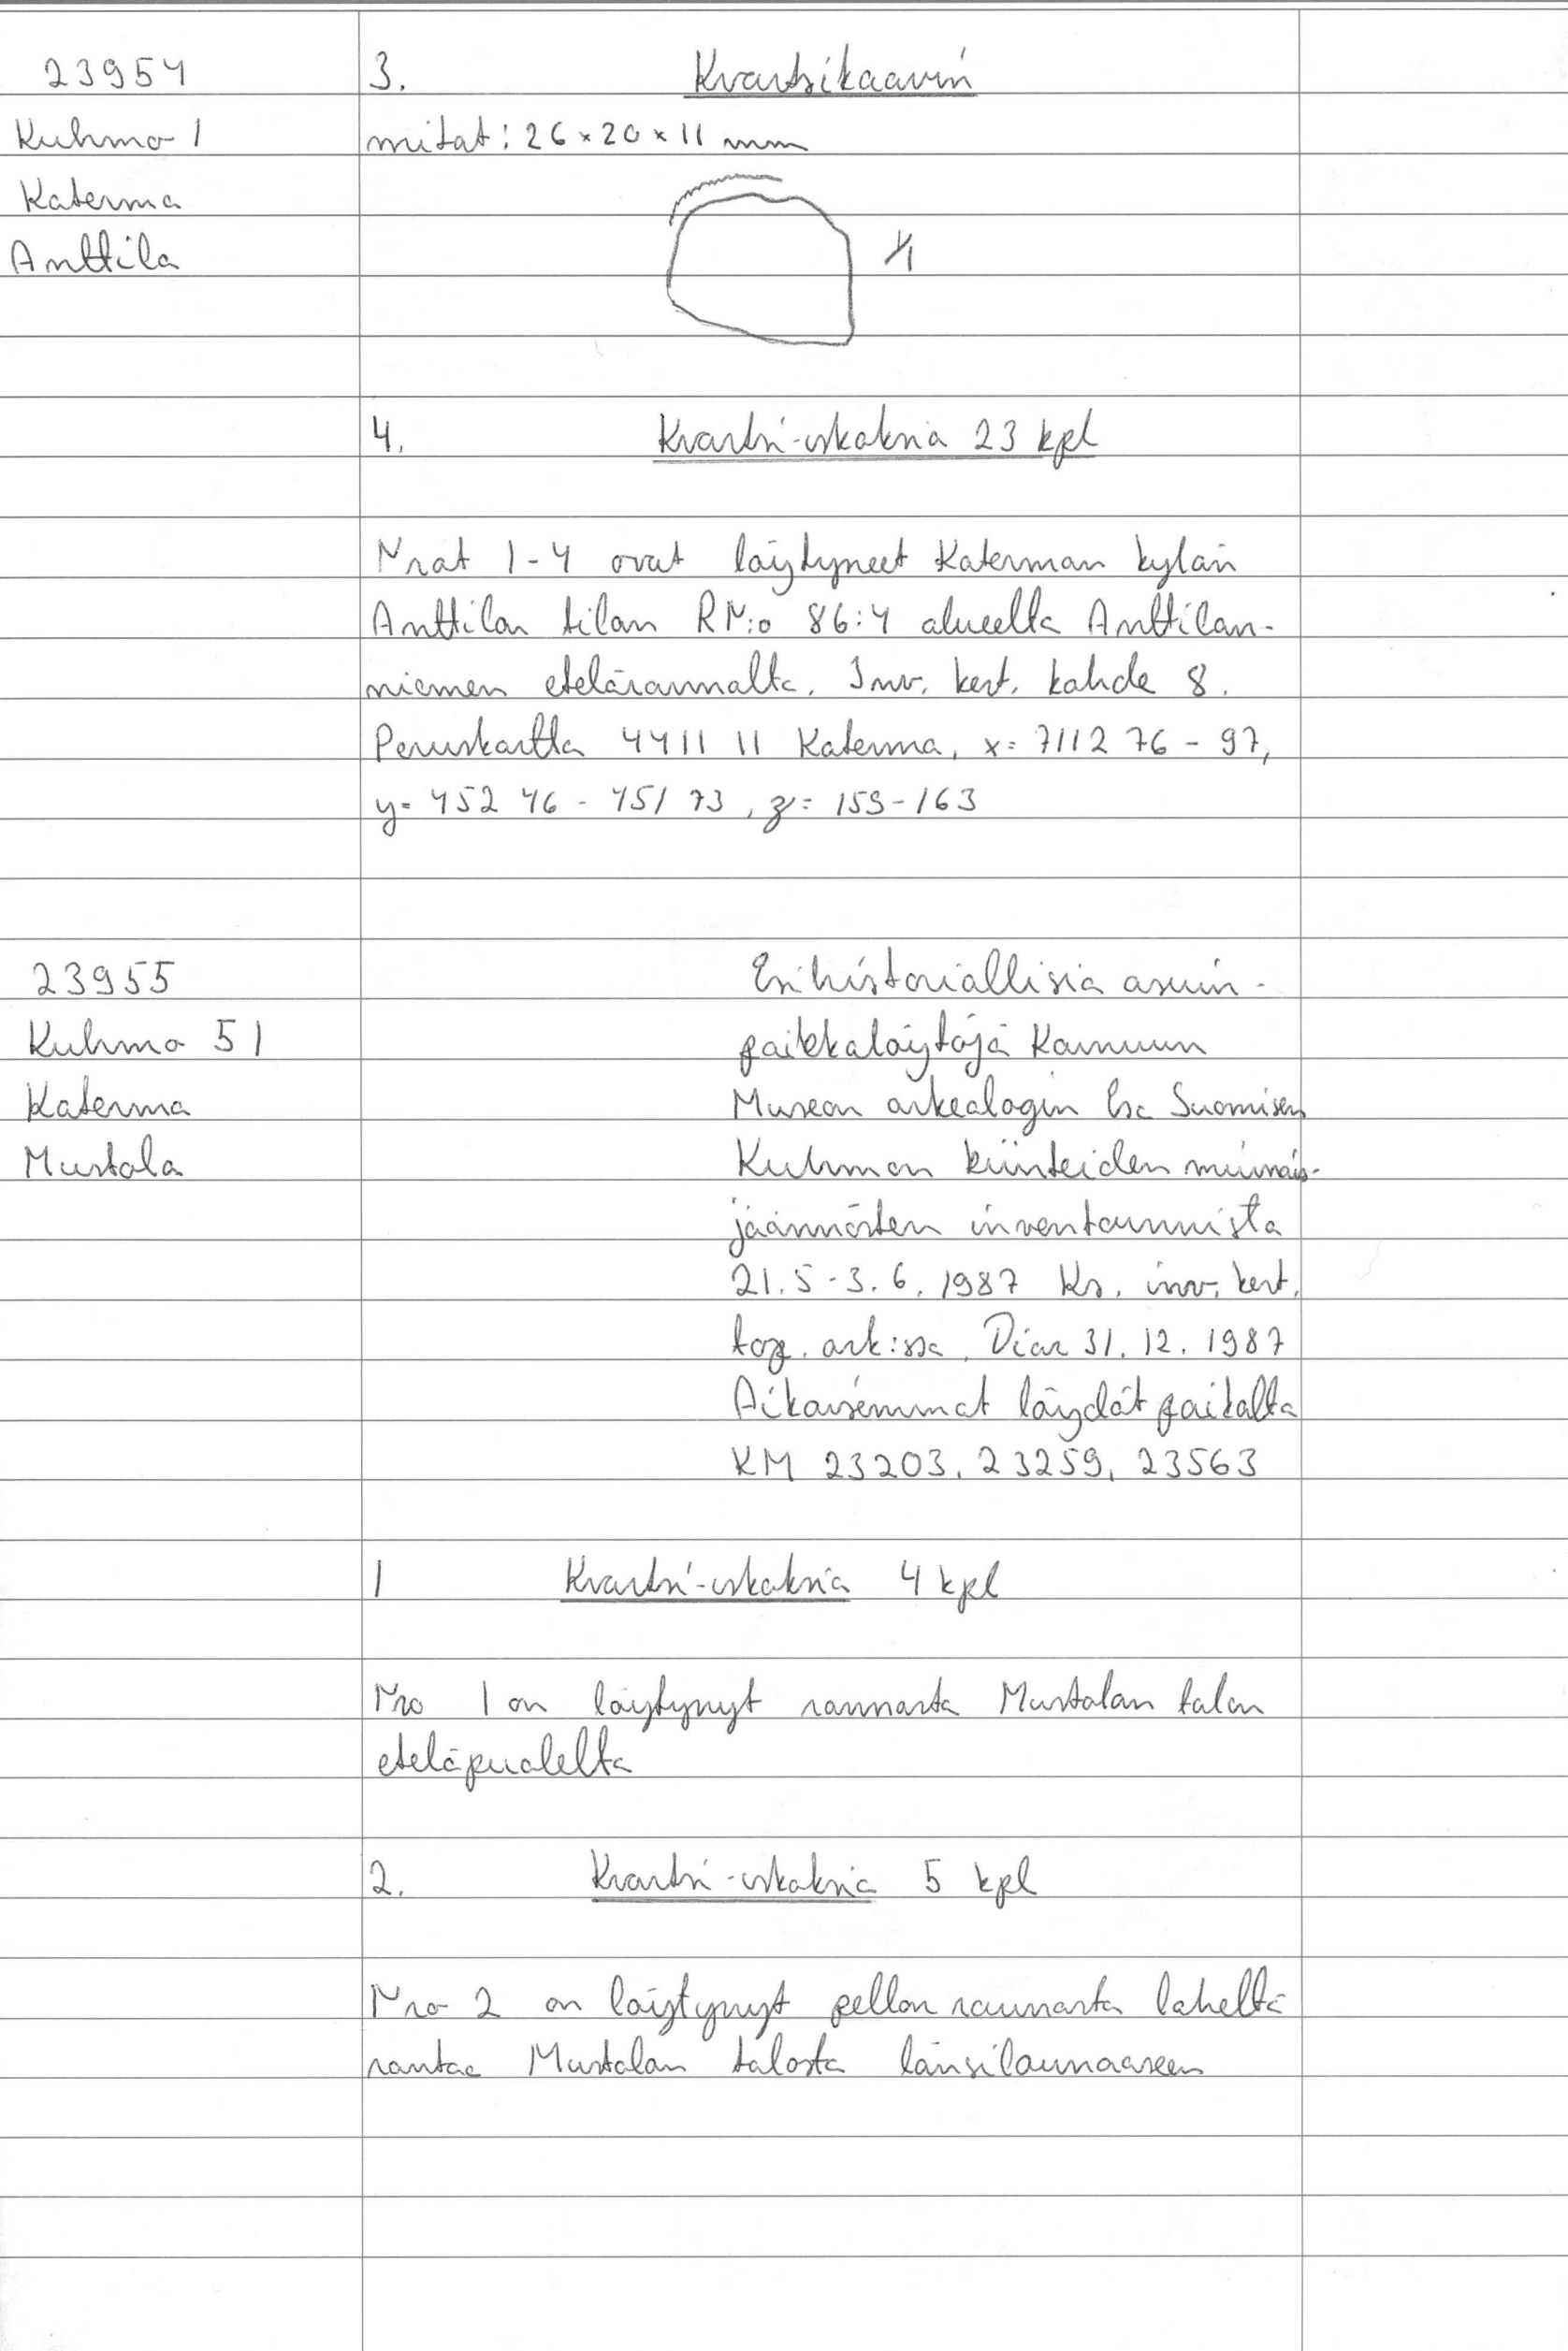 23954
Kuhmo 1
Katerma
Anttila
3. Kvartsikaavin
mitat: 26 × 20 × 11 mm
1/1
4. Kvartsi-iskoksia 23 kpl
Nrot 1-4 ovat löytyneet Katerman kylän
Anttilan tilan RN:o 86:4 alueelta Anttilan-
niemen etelärannalta. Inv. kert. kohde 8.
Peruskartta 4411 11 Katerma, x= 7112 76 - 97,
y= 452 46 - 451 73, z= 159-163
23955
Kuhmo 51
Katerma
Mustola
Esihistoriallisia asuin-
paikkalöytöjä Kainuun
Museon arkeologin Esa Suomisen
Kuhmon kiinteiden muinais-
jäännösten inventoinnista
21.5-3.6.1987 Ks. inv. kert.
top. ark:ssa. Diar 31.12.1987
Aikaisemmat löydöt paikalta
KM 23203, 23259, 23563
1 Kvartsi-iskoksia 4 kpl
Nro 1 on löytynyt rannasta Mustolan talon
eteläpuolelta
2. Kvartsi-iskoksia 5 kpl
Nro 2 on löytynyt pellon reunasta läheltä
rantaa Mustolan talosta länsilounaaseen